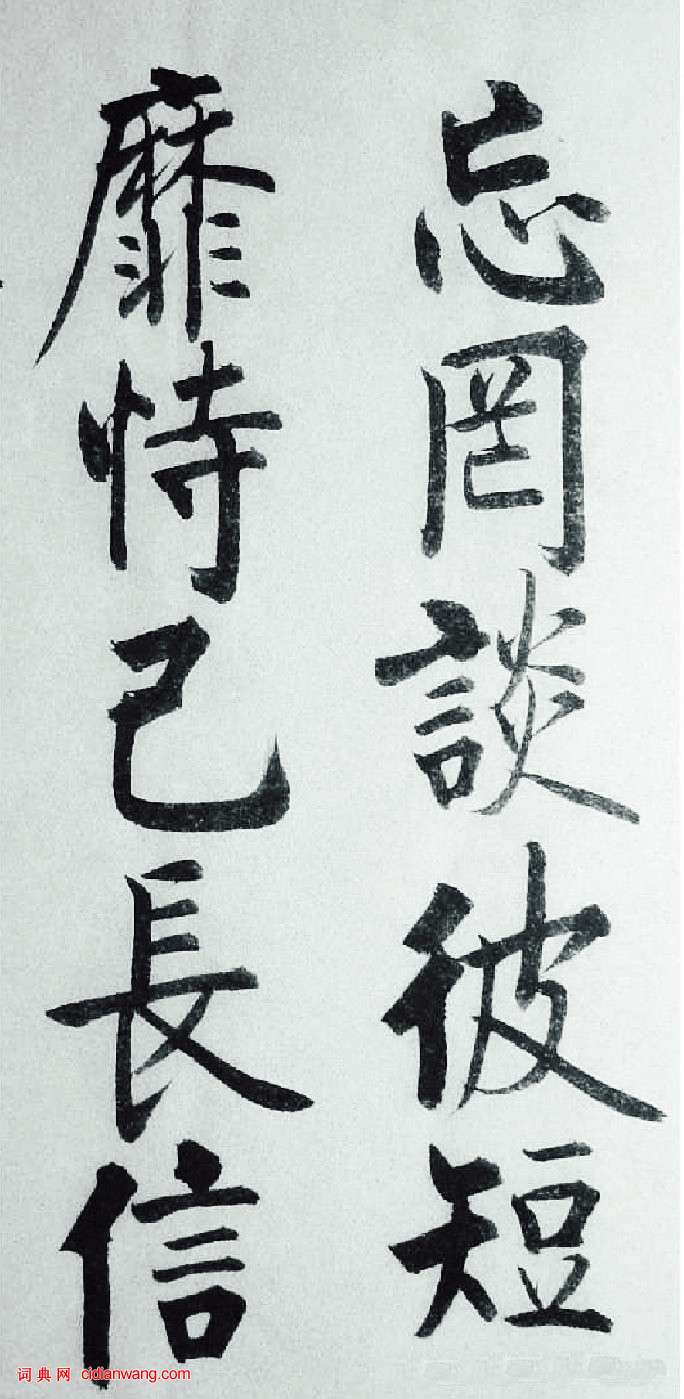 忘罔談彼短
靡恃己長信
词典网 cidianwang.com